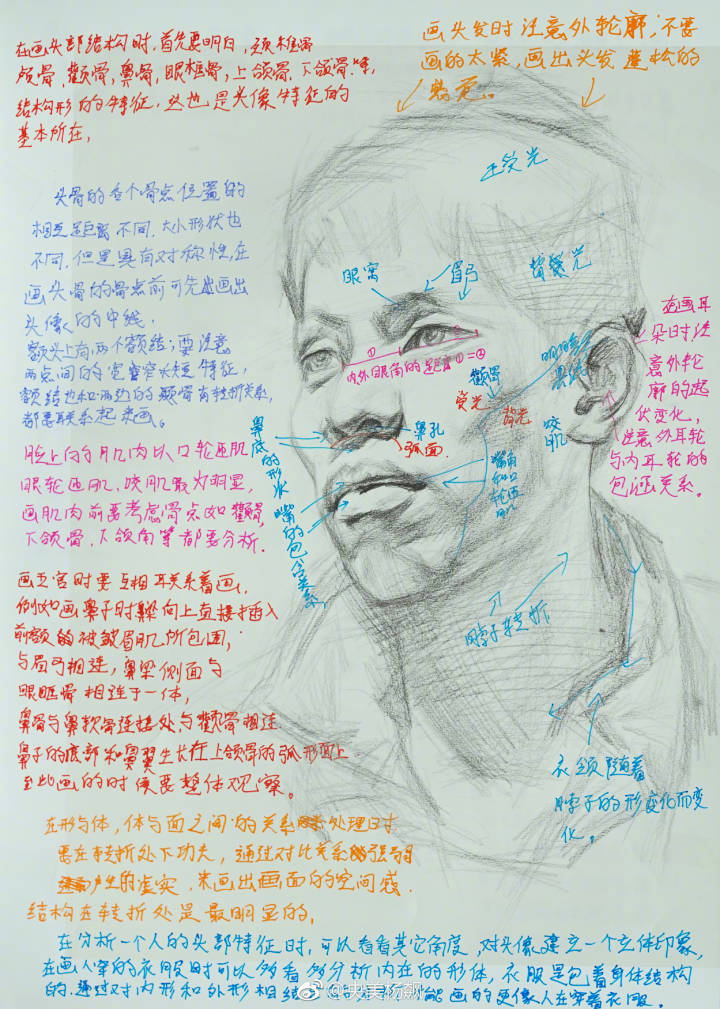 在画头部结构时,首先要明白,颈椎骨
颅骨,颧骨,鼻骨,眼框骨,上颌骨.下颌骨.
结构形的特征.这也是头像特征的
基本所在,
画头发时注意外轮廓,不要
画的太紧,画出头发蓬松的
感觉。
正受光
头骨的各个骨点位置的
相互距离不同.大小形状也
不同.但是具有对称性,在
画头骨的骨点前可先画出
头像的中线.
额头上有两个额结;要注意
两点间的宽窄长短特征,
额结也和两边的颞骨有转折关系,
都要联系起来画。
眼窝
眉弓
背受光
在画耳
朵时注
意外轮
廓的起
伏变化,
注意外耳轮
与内耳轮的
包涵关系.
①
②
内外眼角的距离①=②
明暗交
界线
颧骨
受光
背光
咬肌
鼻底的形状
鼻孔
弧面.
嘴角和口轮匝肌
嘴的包含关系
脸上的肌肉以口轮匝肌
眼轮匝肌,咬肌最为明显,
画肌肉前要考虑骨点如颧骨,
下颌骨.下颌角等都要分析.
画五官时要互相联系着画,
例如画鼻子时鼻梁向上直接插入
前额的被皱眉肌所包围,
与眉弓相连,鼻梁侧面与
眼眶骨相连于一体,
鼻骨与鼻软骨连接处,与颧骨相连
鼻子的底部和鼻翼生长在上颌骨的弧形面上
至此画的时候要整体观察。
脖子转折
衣领随着
脖子的形变化而变
化。
在形与体,体与面之间的关系处理时
要在转折处下功夫,通过对比关系强弱
产生的虚实,来画出画面的空间感.
结构在转折处是最明显的,
在分析一个人的头部特征时,可以看看其它角度,对头像建立一个立体印象,
在画人穿的衣服时可以多看多分析内在的形体,衣服是包着身体结构
的.通过对内形和外形相结 能画的更像人在穿着衣服。
@央美杨飙